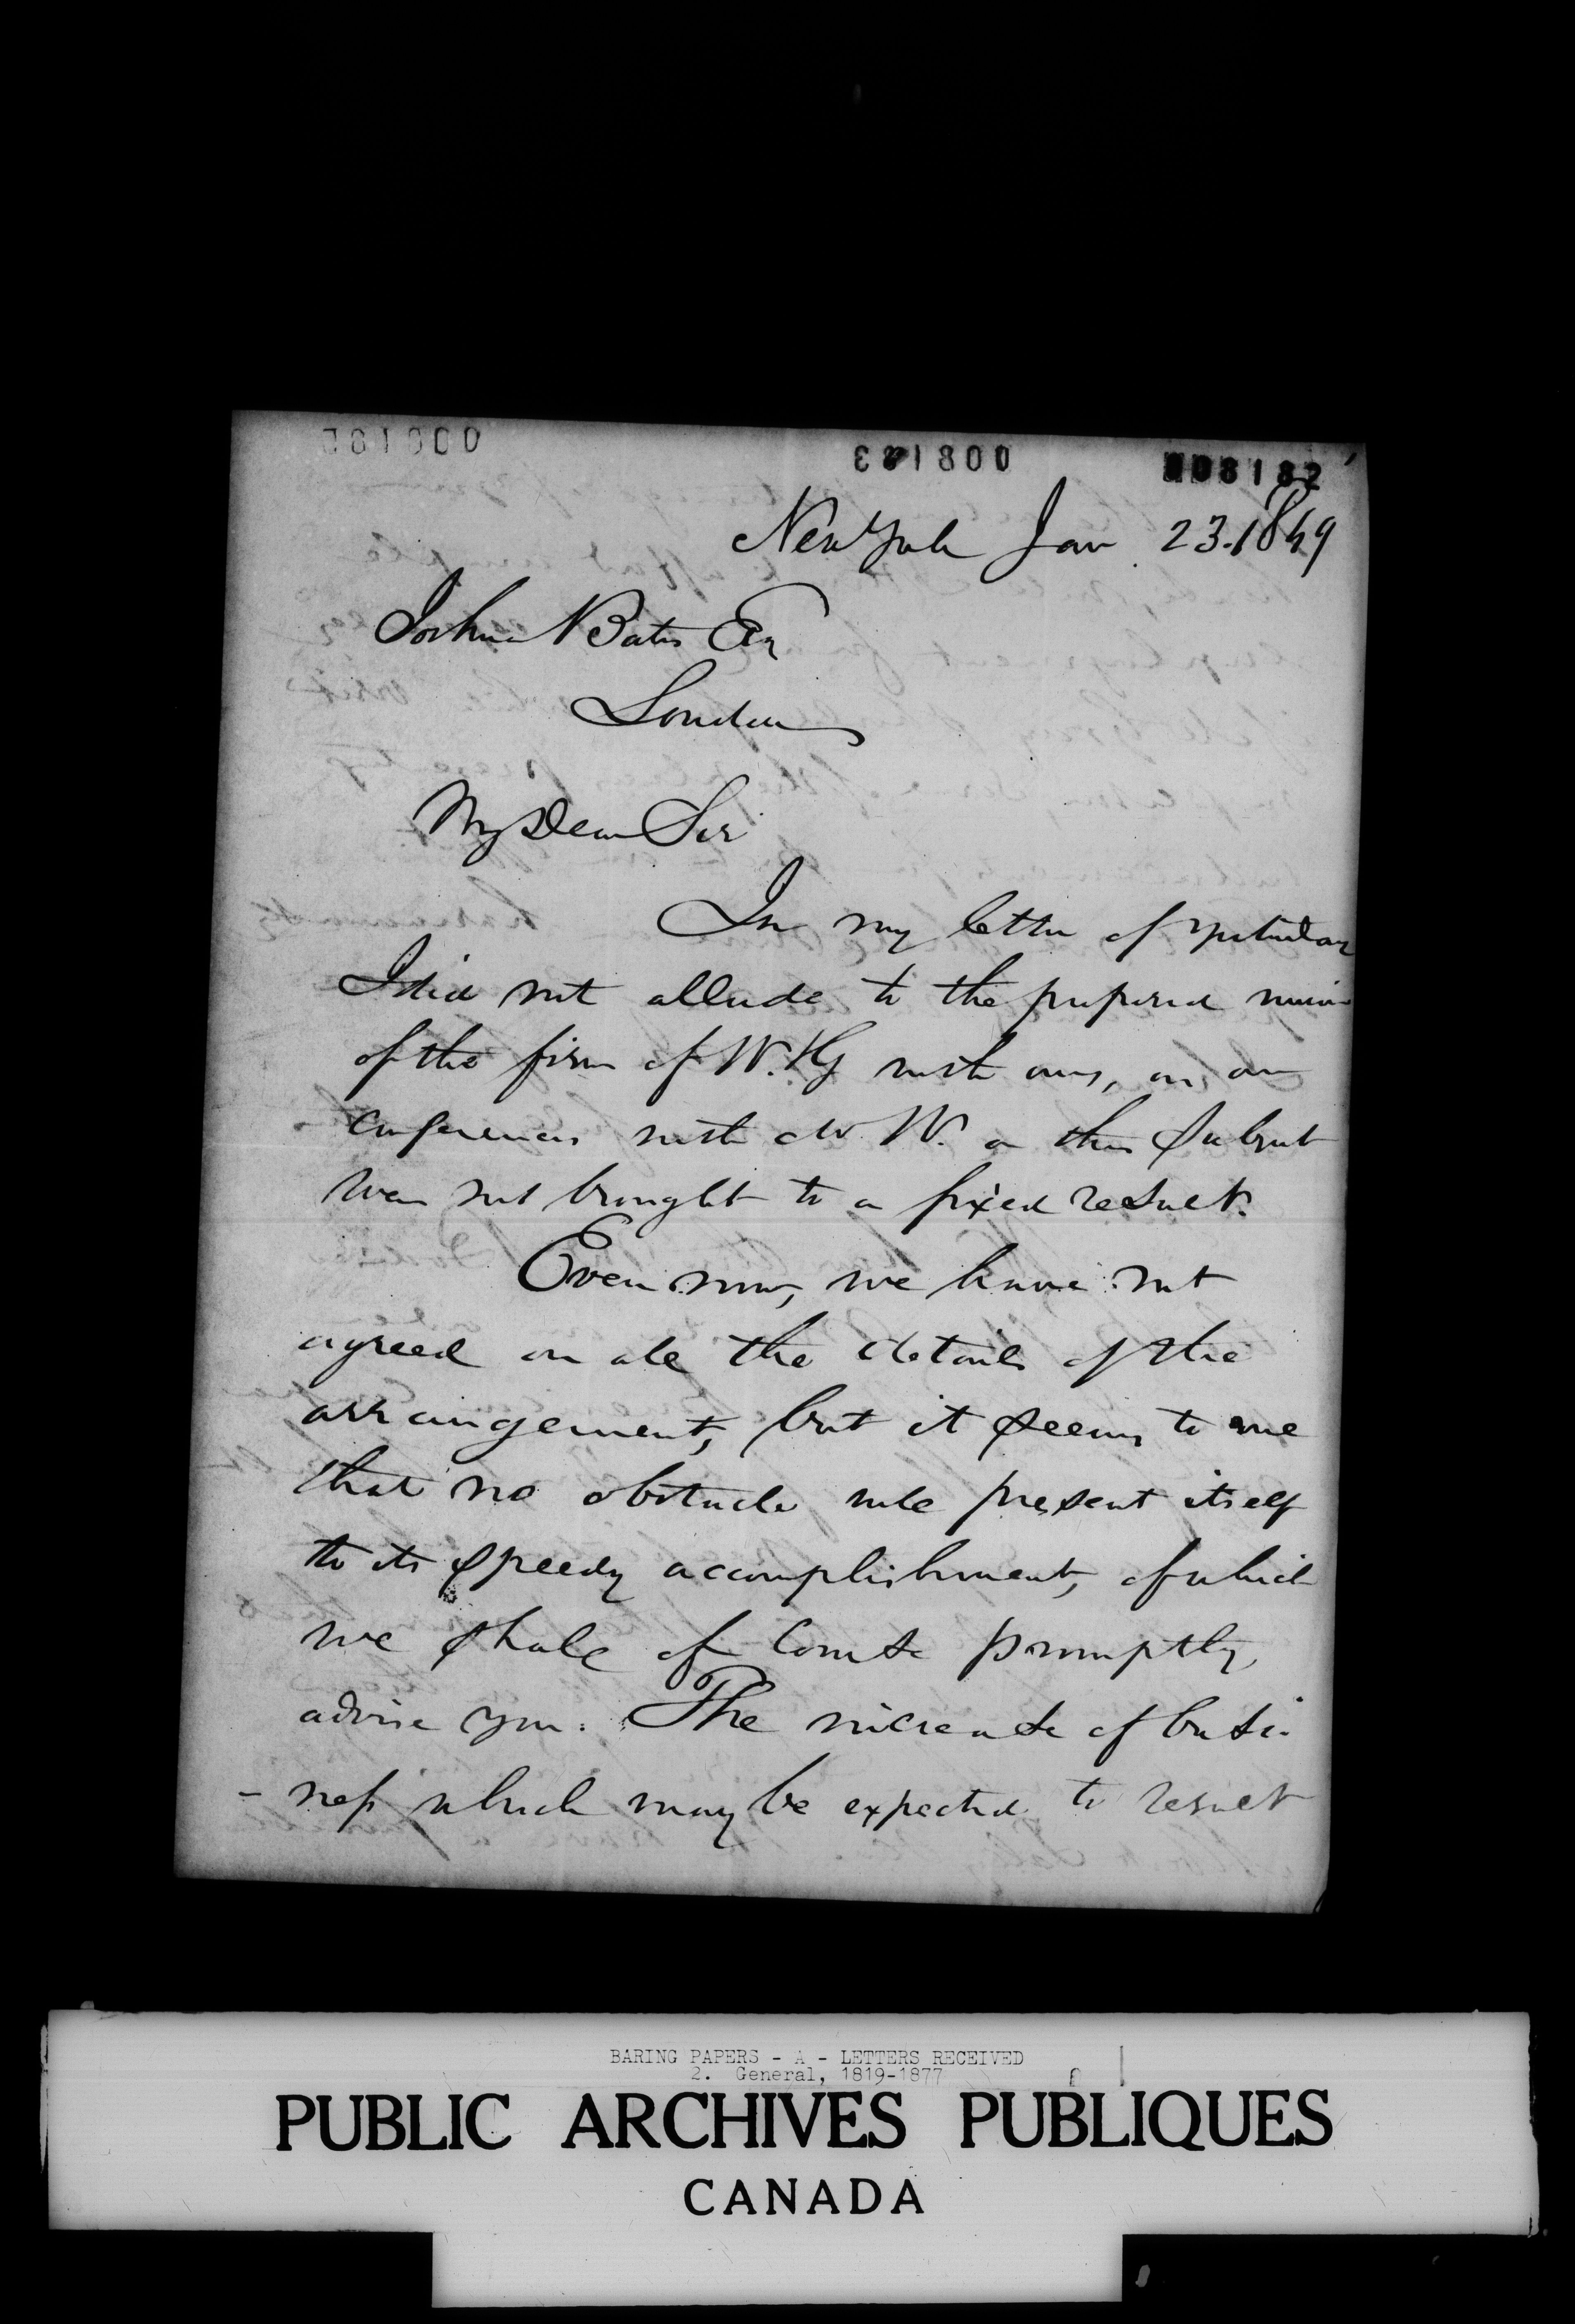 008182
New York Jan 23. 1849
Joshua Bates Esq
London
My Dear Sir
In my letter of yesterday
I did not allude to the proposed union
of the firm of W. & G with ours, as our
conferences with Mr W. on this subject
were not brought to a fixed result.
Even now, we have not
agreed on all the details of the
arrangement, but it seems to me
that no obstacle will present itself
to its speedy accomplishment, of which
we shall of course promptly
advise you. The increase of busi-
-ness which may be expected to result
BARING PAPERS - A - LETTERS RECEIVED
2. General, 1819-1877
PUBLIC ARCHIVES PUBLIQUES
CANADA